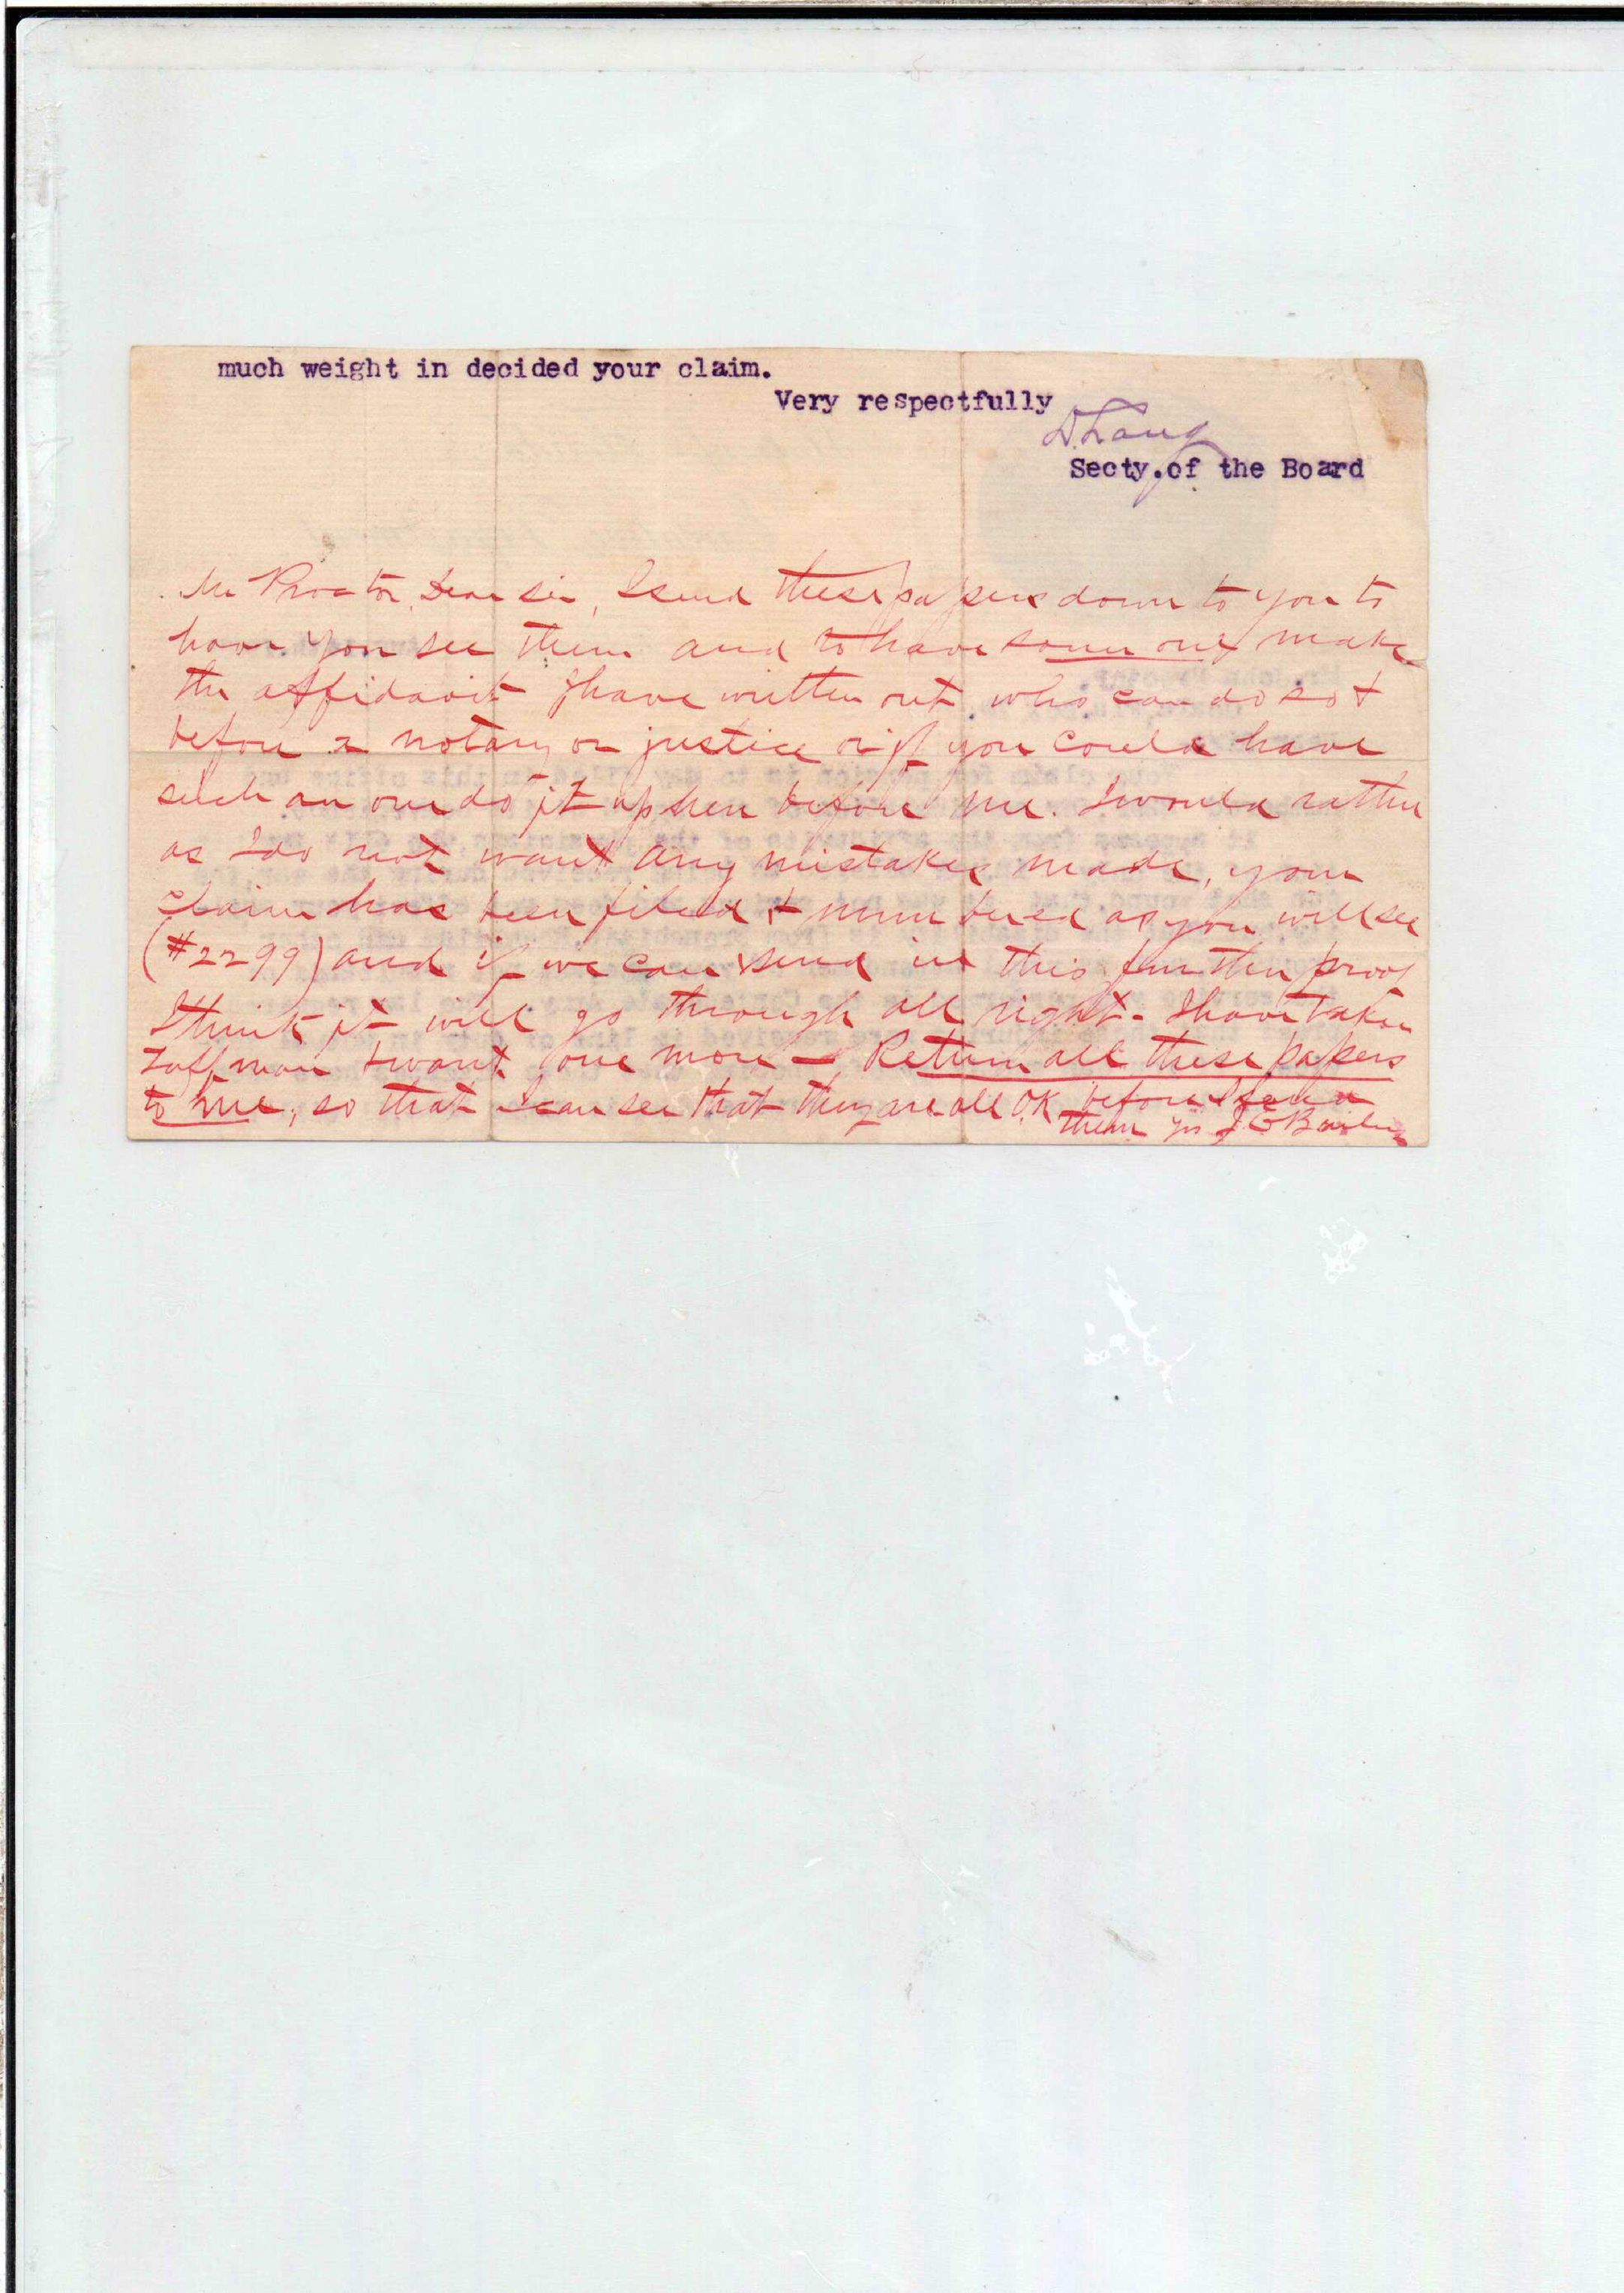 much weight in decided your claim.
Very respectfully
D. Lang
Secty.of the Board
Mr Proctor, Dear sir, I send these papers down to you to
have you see them and to have some one make
the affidavit I have written out who can do so &
before a notary or justice or if you could have
such an one do it up here before me. I would rather
as I do not want any mistakes made, your
claim has been filed & numbered as you will see
(#2299) and if we can send in this further proof
I think it will go through all right - I have taken
& want one more - Return all these papers
to me, so that I can see that they are all OK before I send
them yrs J E B